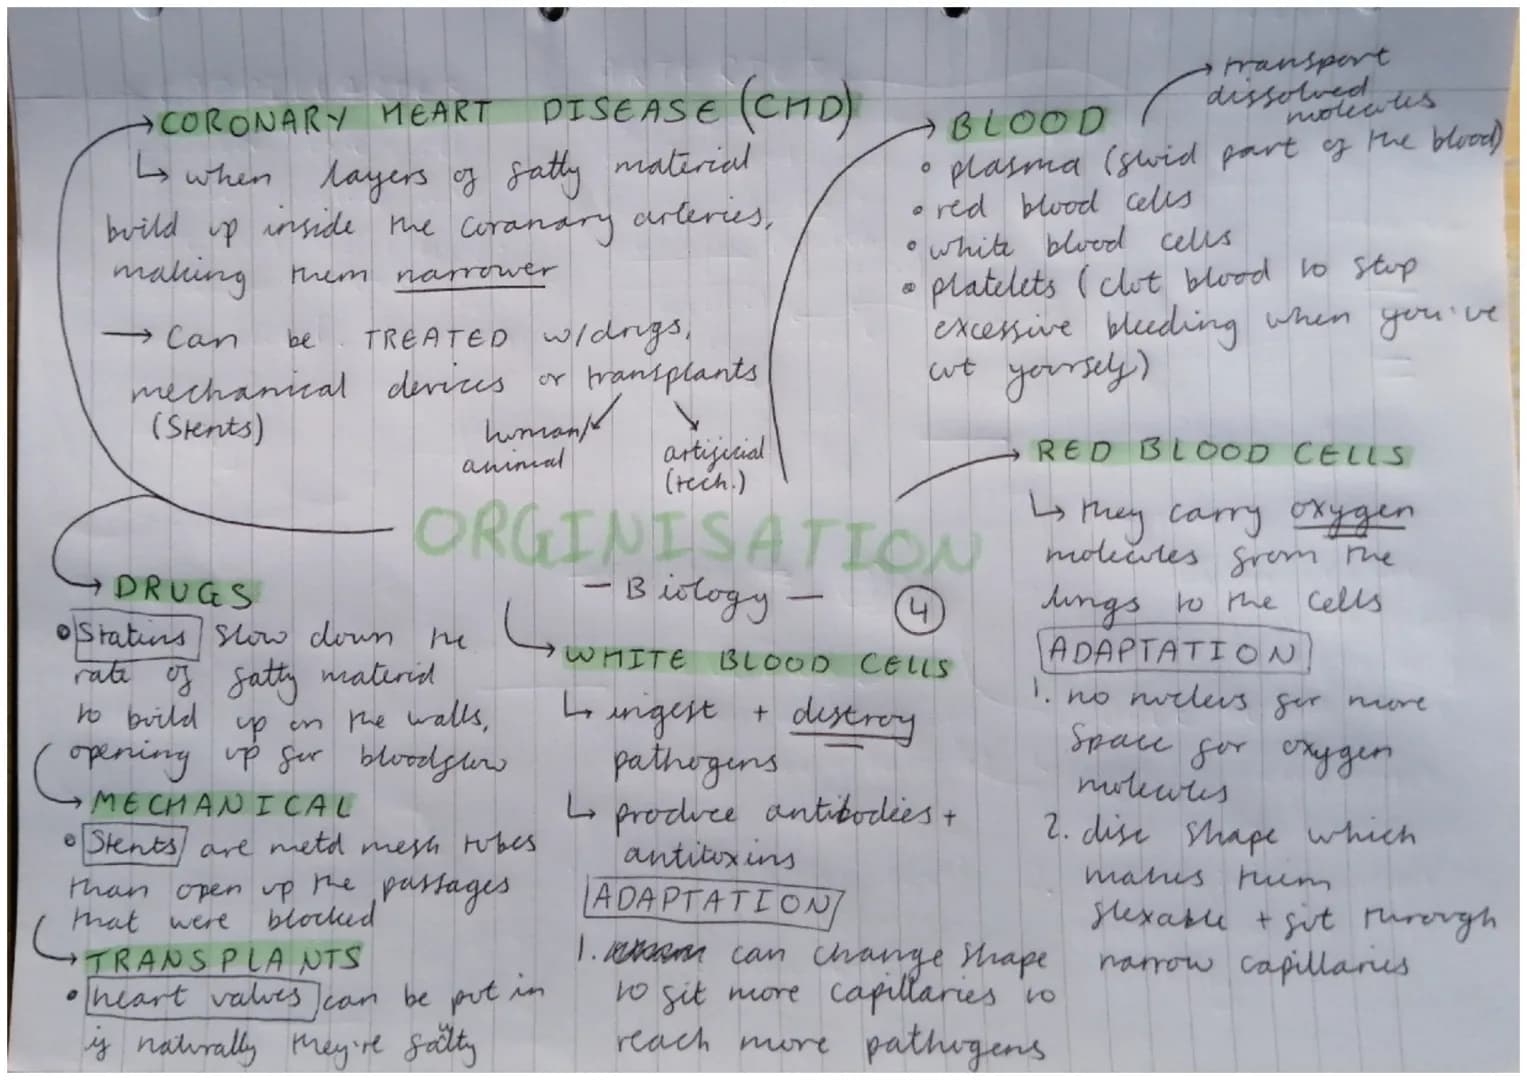 CORONARY HEART DISEASE (CHD)
↳ when layers of fatty material
build up inside the coranary arteries,
making them narrower
→ Can be TREATED w/drugs,
mechanical devices or transplants
(Stents)
human/
animal
artificial
(tech.)
→ transport
dissolved
molecules
BLOOD
• plasma (fluid part of the blood)
• red blood cells
• white blood cells
• platelets (clot blood to stop
excessive bleeding when you've
cut yourself)
RED BLOOD CELLS
↳ they carry oxygen
molecules from the
lungs to the cells
ADAPTATION
1. no nucleus for more
space for oxygen
molecules
2. disc shape which
makes them
flexable + fit through
narrow capillaries
ORGINISATION
- Biology -
4
DRUGS
• Statins slow down the
rate of fatty material
to build up on the walls,
opening up for bloodflow
MECHANICAL
• Stents are metal mesh tubes
than open up the passages
that were blocked
TRANSPLANTS
• heart valves can be put in
if naturally they're faulty
WHITE BLOOD CELLS
↳ ingest + destroy
pathogens
↳ produce antibodies +
antitoxins
ADAPTATION
1. can change shape
to fit more capillaries to
reach more pathogens